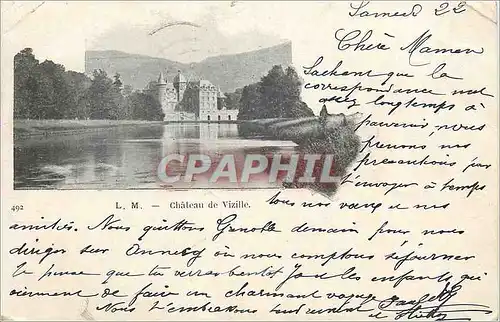 Samedi 22
Chère Maman
Sachant que la
correspondance met
assez longtemps à
parvenir, nous
prenons nos
précautions pour
t'envoyer à temps
tous nos vœux et nos
CPAPHIL
492 L. M. — Château de Vizille.
amitiés. Nous quittons Grenoble demain pour nous
diriger sur Annecy où nous comptons séjourner
Je pense que tu verras bientôt les enfants qui
viennent de faire un charmant voyage
Nous t'embrassons tendrement
et